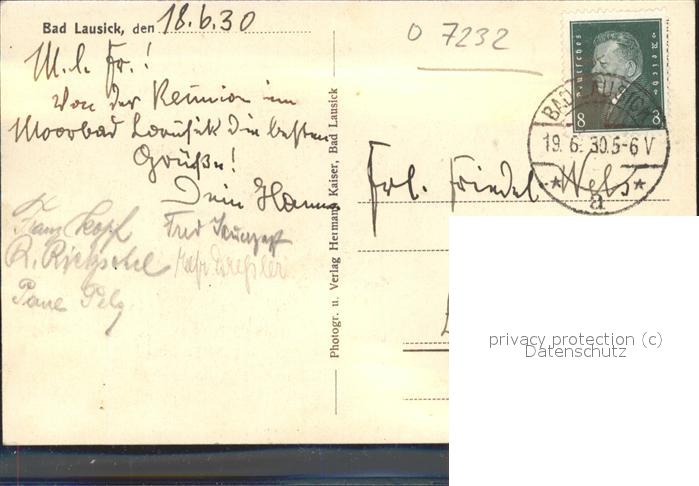 Bad Lausick, den 18.6.30
M. l. Fr.!
Von der Reunion im
Moorbad Lausik die besten
Grüße!
Dein Hanns
Franz Kopf
Fred
R. Rietzschel
Drefsler
Pelz
Photogr. u. Verlag Hermann Kaiser, Bad Lausick
O 7232
Deutsches Reich
8 8
BAD LAUSICK
19. 6. 30. 5-6 V
* a *
Frl. Friedel Wels
privacy protection (c)
Datenschutz